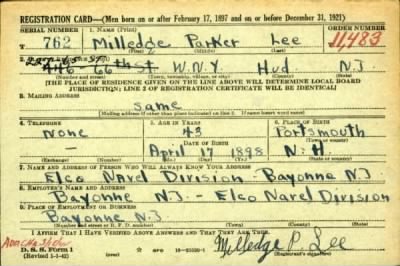 REGISTRATION CARD—(Men born on or after February 17, 1897 and on or before December 31, 1921)
SERIAL NUMBER 1. NAME (Print) ORDER NUMBER
762 Milledge Parker Lee 11,483
(First) (Middle) (Last)
66th St W.N.Y Hud. N.J
(Number and street) (Town, township, village, or city) (County) (State)
[THE PLACE OF RESIDENCE GIVEN ON THE LINE ABOVE WILL DETERMINE LOCAL BOARD
JURISDICTION; LINE 2 OF REGISTRATION CERTIFICATE WILL BE IDENTICAL]
3. MAILING ADDRESS
same
[Mailing address if other than place indicated on line 2. If same insert word same]
4. TELEPHONE 5. AGE IN YEARS 6. PLACE OF BIRTH
none 43 Portsmouth
DATE OF BIRTH (Town or county)
— April 17 1898 N.H
(Exchange) (Number) (Mo.) (Day) (Yr.) (State or country)
7. NAME AND ADDRESS OF PERSON WHO WILL ALWAYS KNOW YOUR ADDRESS
Elco Navel Division - Bayonne NJ
8. EMPLOYER'S NAME AND ADDRESS
Bayonne N.J - Elco Navel Division
9. PLACE OF EMPLOYMENT OR BUSINESS
Bayonne N.J.
(Number and street or R. F. D. number) (Town) (County) (State)
I AFFIRM THAT I HAVE VERIFIED ABOVE ANSWERS AND THAT THEY ARE TRUE.
D. S. S. Form 1
(Revised 1-1-42) (over)
Milledge P. Lee